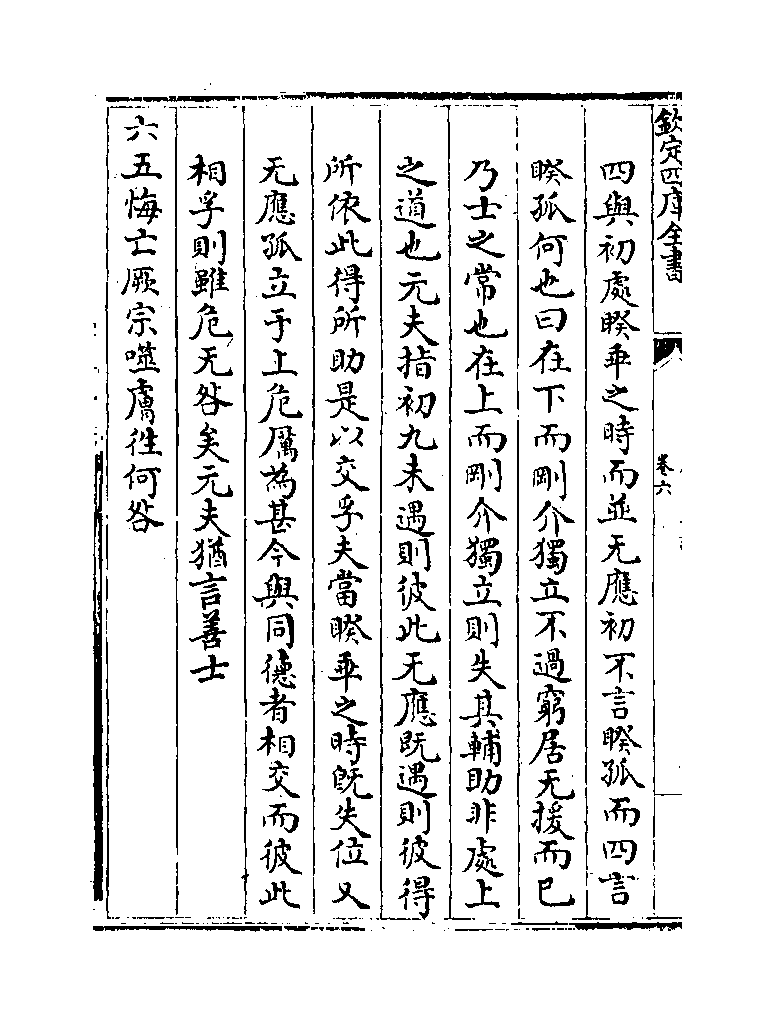 欽定四庫全書
卷六
四與初處睽乖之時而並无應初不言睽孤而四言
睽孤何也曰在下而剛介獨立不過窮居无援而已
乃士之常也在上而剛介獨立則失其輔助非處上
之道也元夫指初九未遇則彼此无應既遇則彼得
所依此得所助是以交孚夫當睽乖之時既失位又
无應孤立于上危厲為甚今與同德者相交而彼此
相孚則雖危无咎矣元夫猶言善士
六五悔亡厥宗噬膚徃何咎